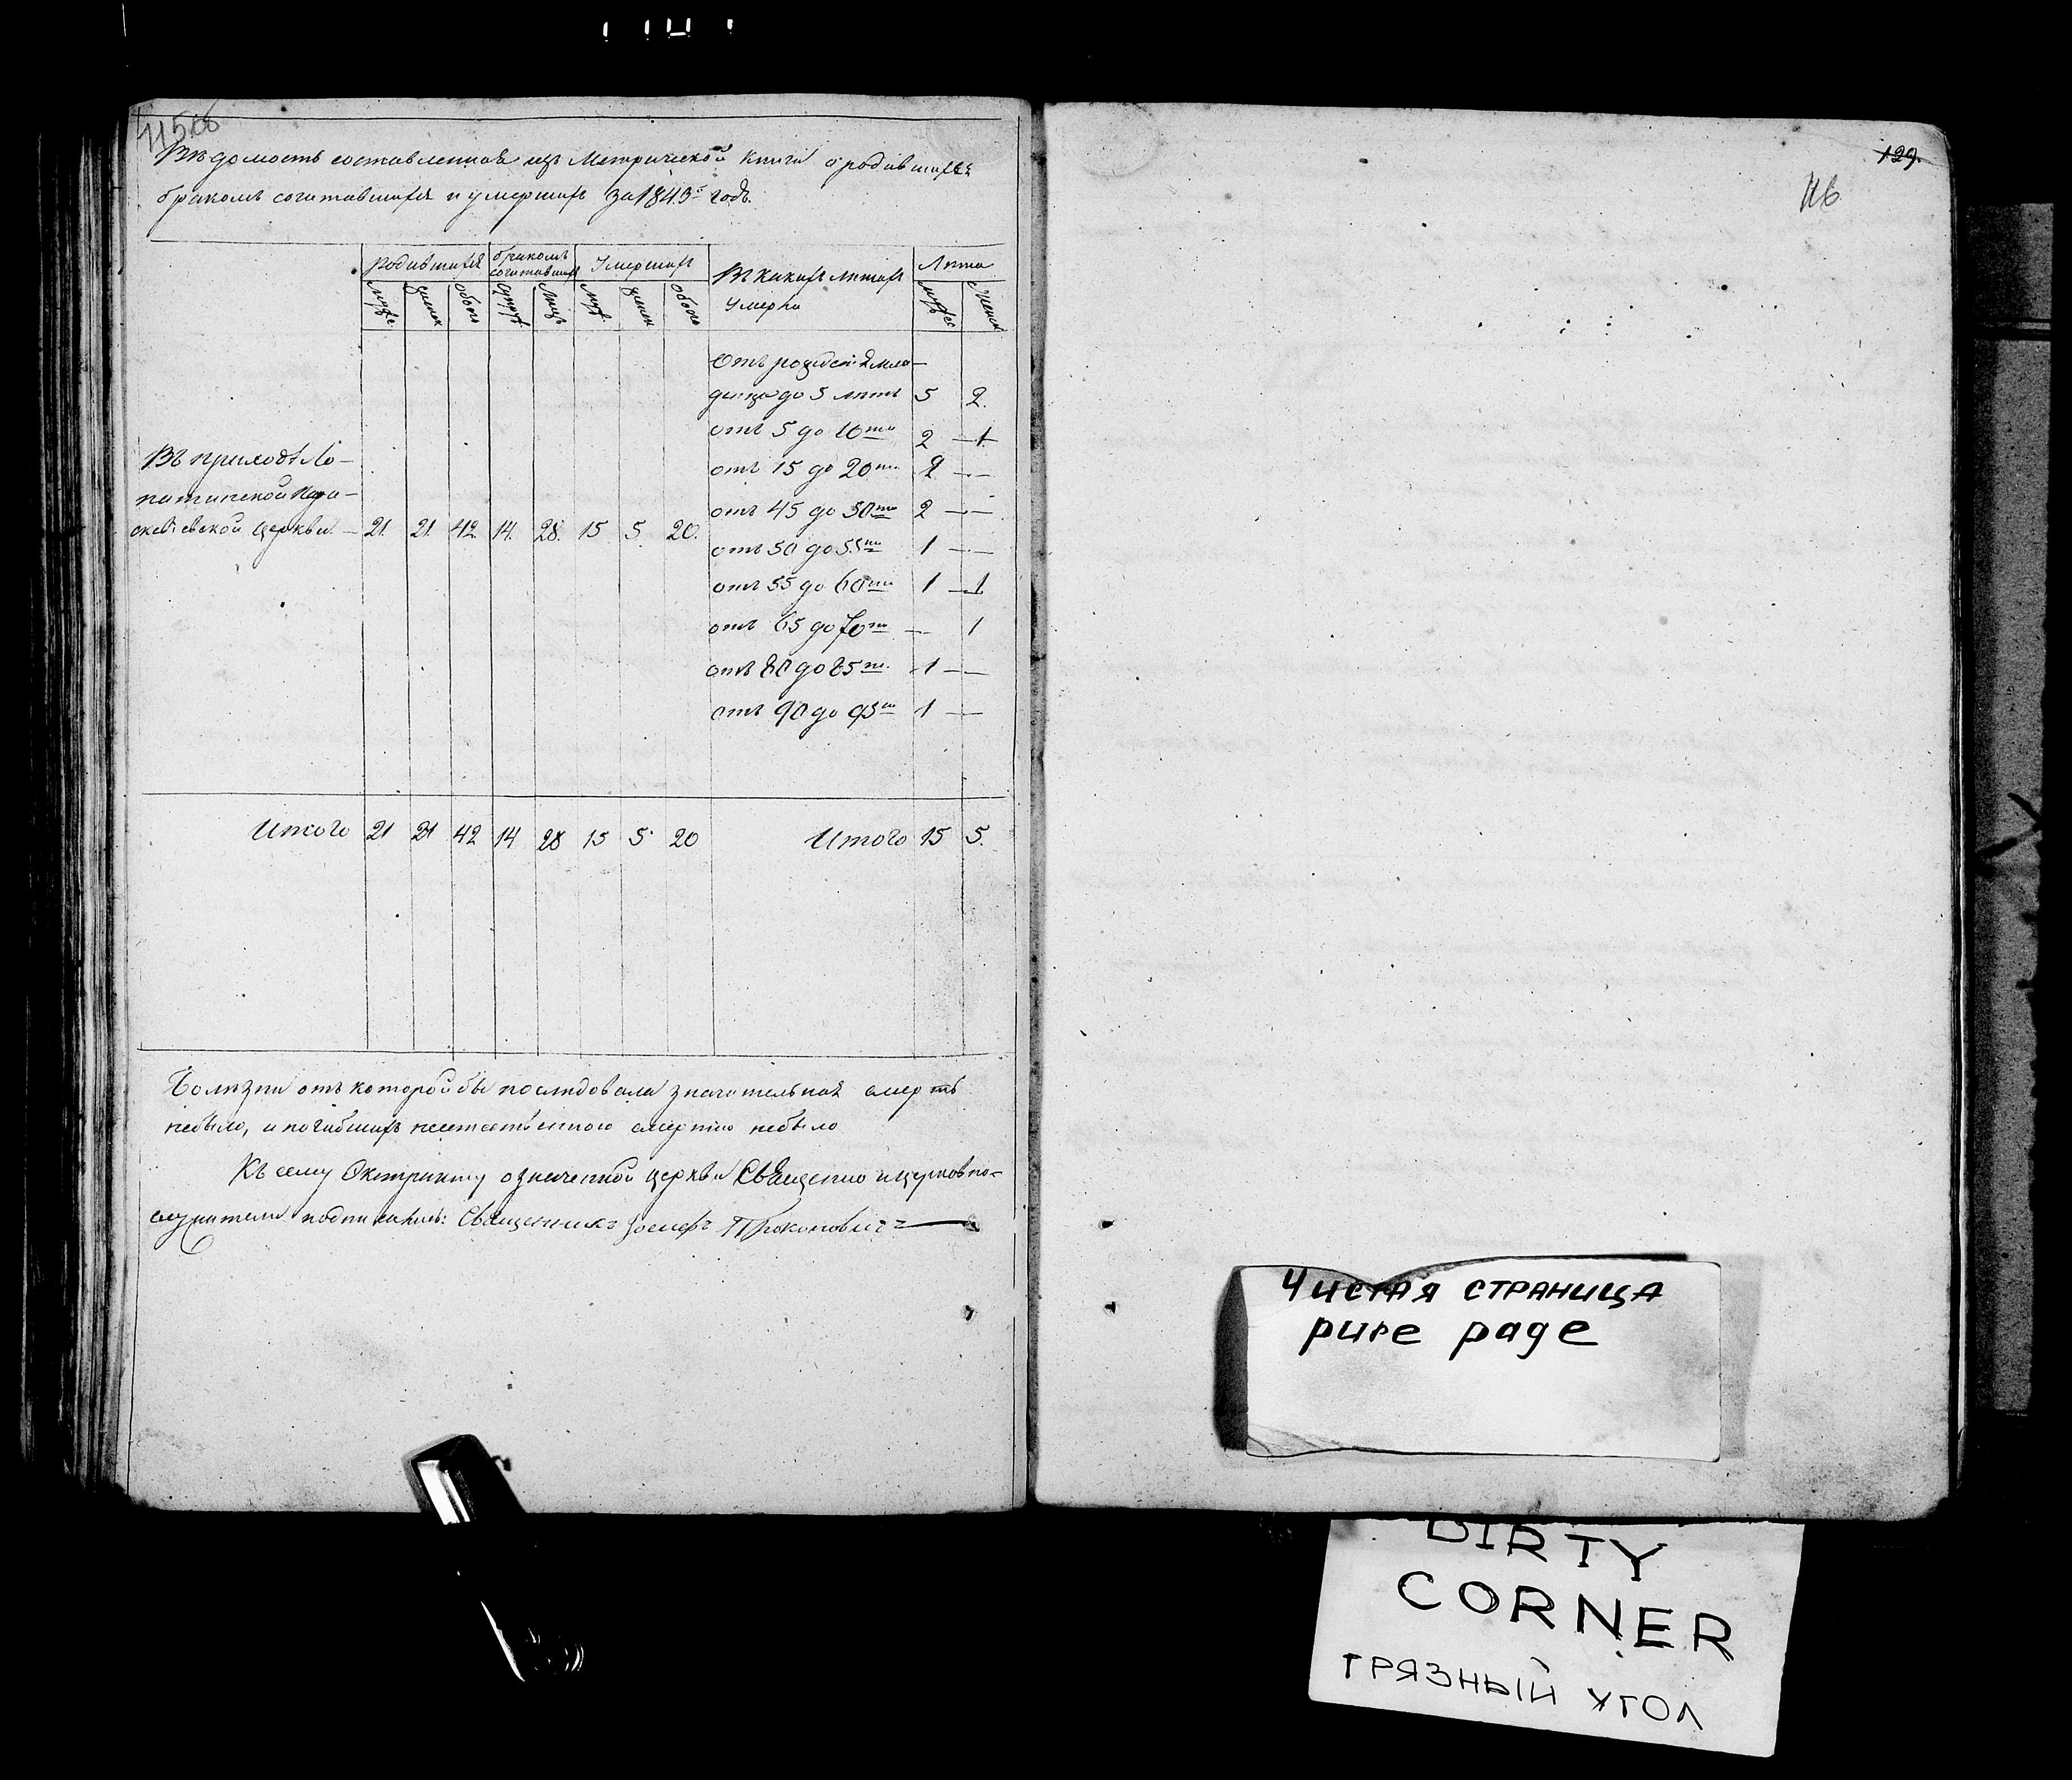 115об
Вѣдомость составленная изъ Метрической книги о родившихся
бракомъ сочитавшихся и умершихъ за 1843й годъ.
Родившихся бракомъ сочитавших Умершихъ Въ какихъ лѣтахъ умерли Лѣта
Муже женск обоего супруж лицъ муж женск обоего мужес женск
Отъ рождения мла-
денца до 5 лѣтъ 5 2.
отъ 5 до 10ти 2 — 1.
отъ 15 до 20ти 2 —
отъ 45 до 50ти 2 —
отъ 50 до 55ти 1 —
отъ 55 до 60ти 1 — 1
отъ 65 до 70ти — 1
отъ 80 до 85ти 1 —
отъ 90 до 95ти 1 —
Въ приходѣ Ло-
патинской Пара-
скевіевской церкви — 21. 21. 42. 14. 28. 15 5. 20.
Итого 21 21 42 14 28 15 5 20 Итого 15 5.
Болѣзни отъ которой бы последовала значительная смерть
небыло, и погибшихъ неестественною смертію небыло
Къ сему Экстракту означенной церкви Священно и церковно-
служители подписались: Священникъ Іосифъ Прокоповичъ
129.
116
Чистая страница
pure page
DIRTY
CORNER
ГРЯЗНЫЙ УГОЛ